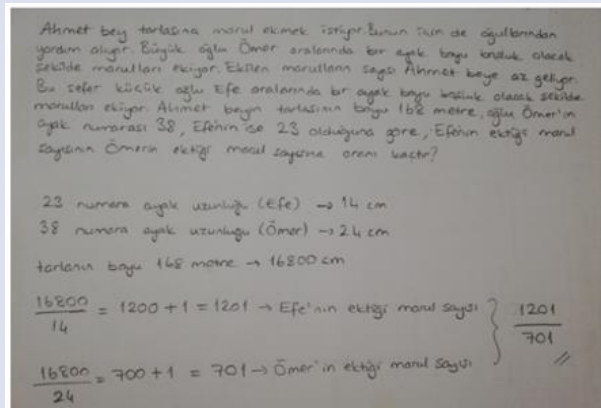 Ahmet bey tarlasına marul ekmek istiyor. Bunun için de oğullarından
yardım alıyor. Büyük oğlu Ömer aralarında bir ayak boyu boşluk olacak
şekilde marulları ekiyor. Ekilen marulların sayısı Ahmet beye az geliyor.
Bu sefer küçük oğlu Efe aralarında bir ayak boyu boşluk olacak şekilde
marulları ekiyor. Ahmet beyin tarlasının boyu 168 metre, oğlu Ömer'in
ayak numarası 38, Efenin ise 23 olduğuna göre, Efenin ektiği marul
sayısının Ömerin ektiği marul sayısına oranı kaçtır?
23 numara ayak uzunluğu (Efe) → 14 cm
38 numara ayak uzunluğu (Ömer) → 24 cm
tarlanın boyu 168 metre → 16800 cm
16800/14 = 1200 + 1 = 1201 → Efe'nin ektiği marul sayısı
16800/24 = 700 + 1 = 701 → Ömer'in ektiği marul sayısı
1201/701